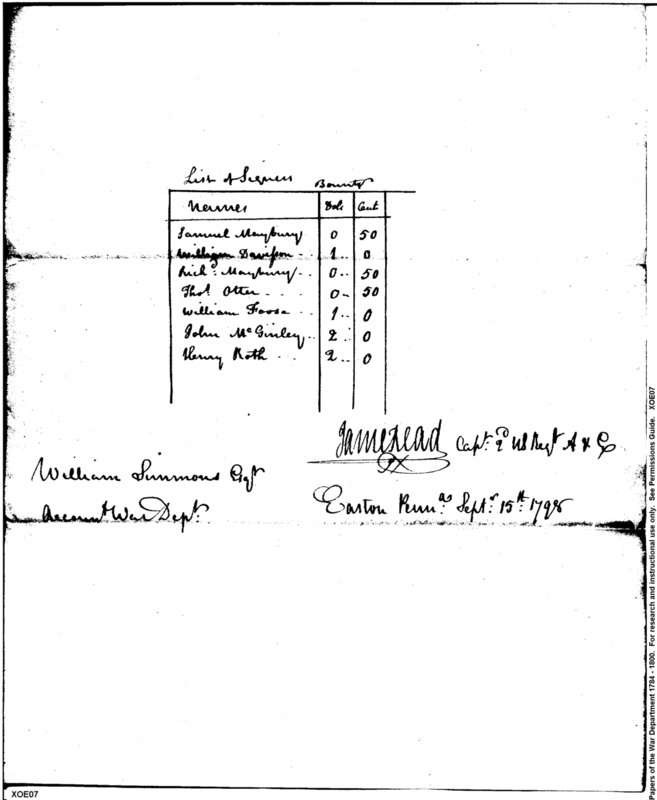 List of Signers Bounty
Names Dols Cent
Samuel Maybury 0 50
William Davisson 1 0
Richd. Maybury 0 50
Thos. Otter 0 50
William Foosa 1 0
John McGinley 2 0
Henry Roth 2 0
James Read Capt. 2d US Regt A & E
William Simmons Esqr
Account War Dept.
Easton Penna. Septr. 15th. 1798
XOE07
Papers of the War Department 1784 - 1800. For research and instructional use only. See Permissions Guide. XOE07